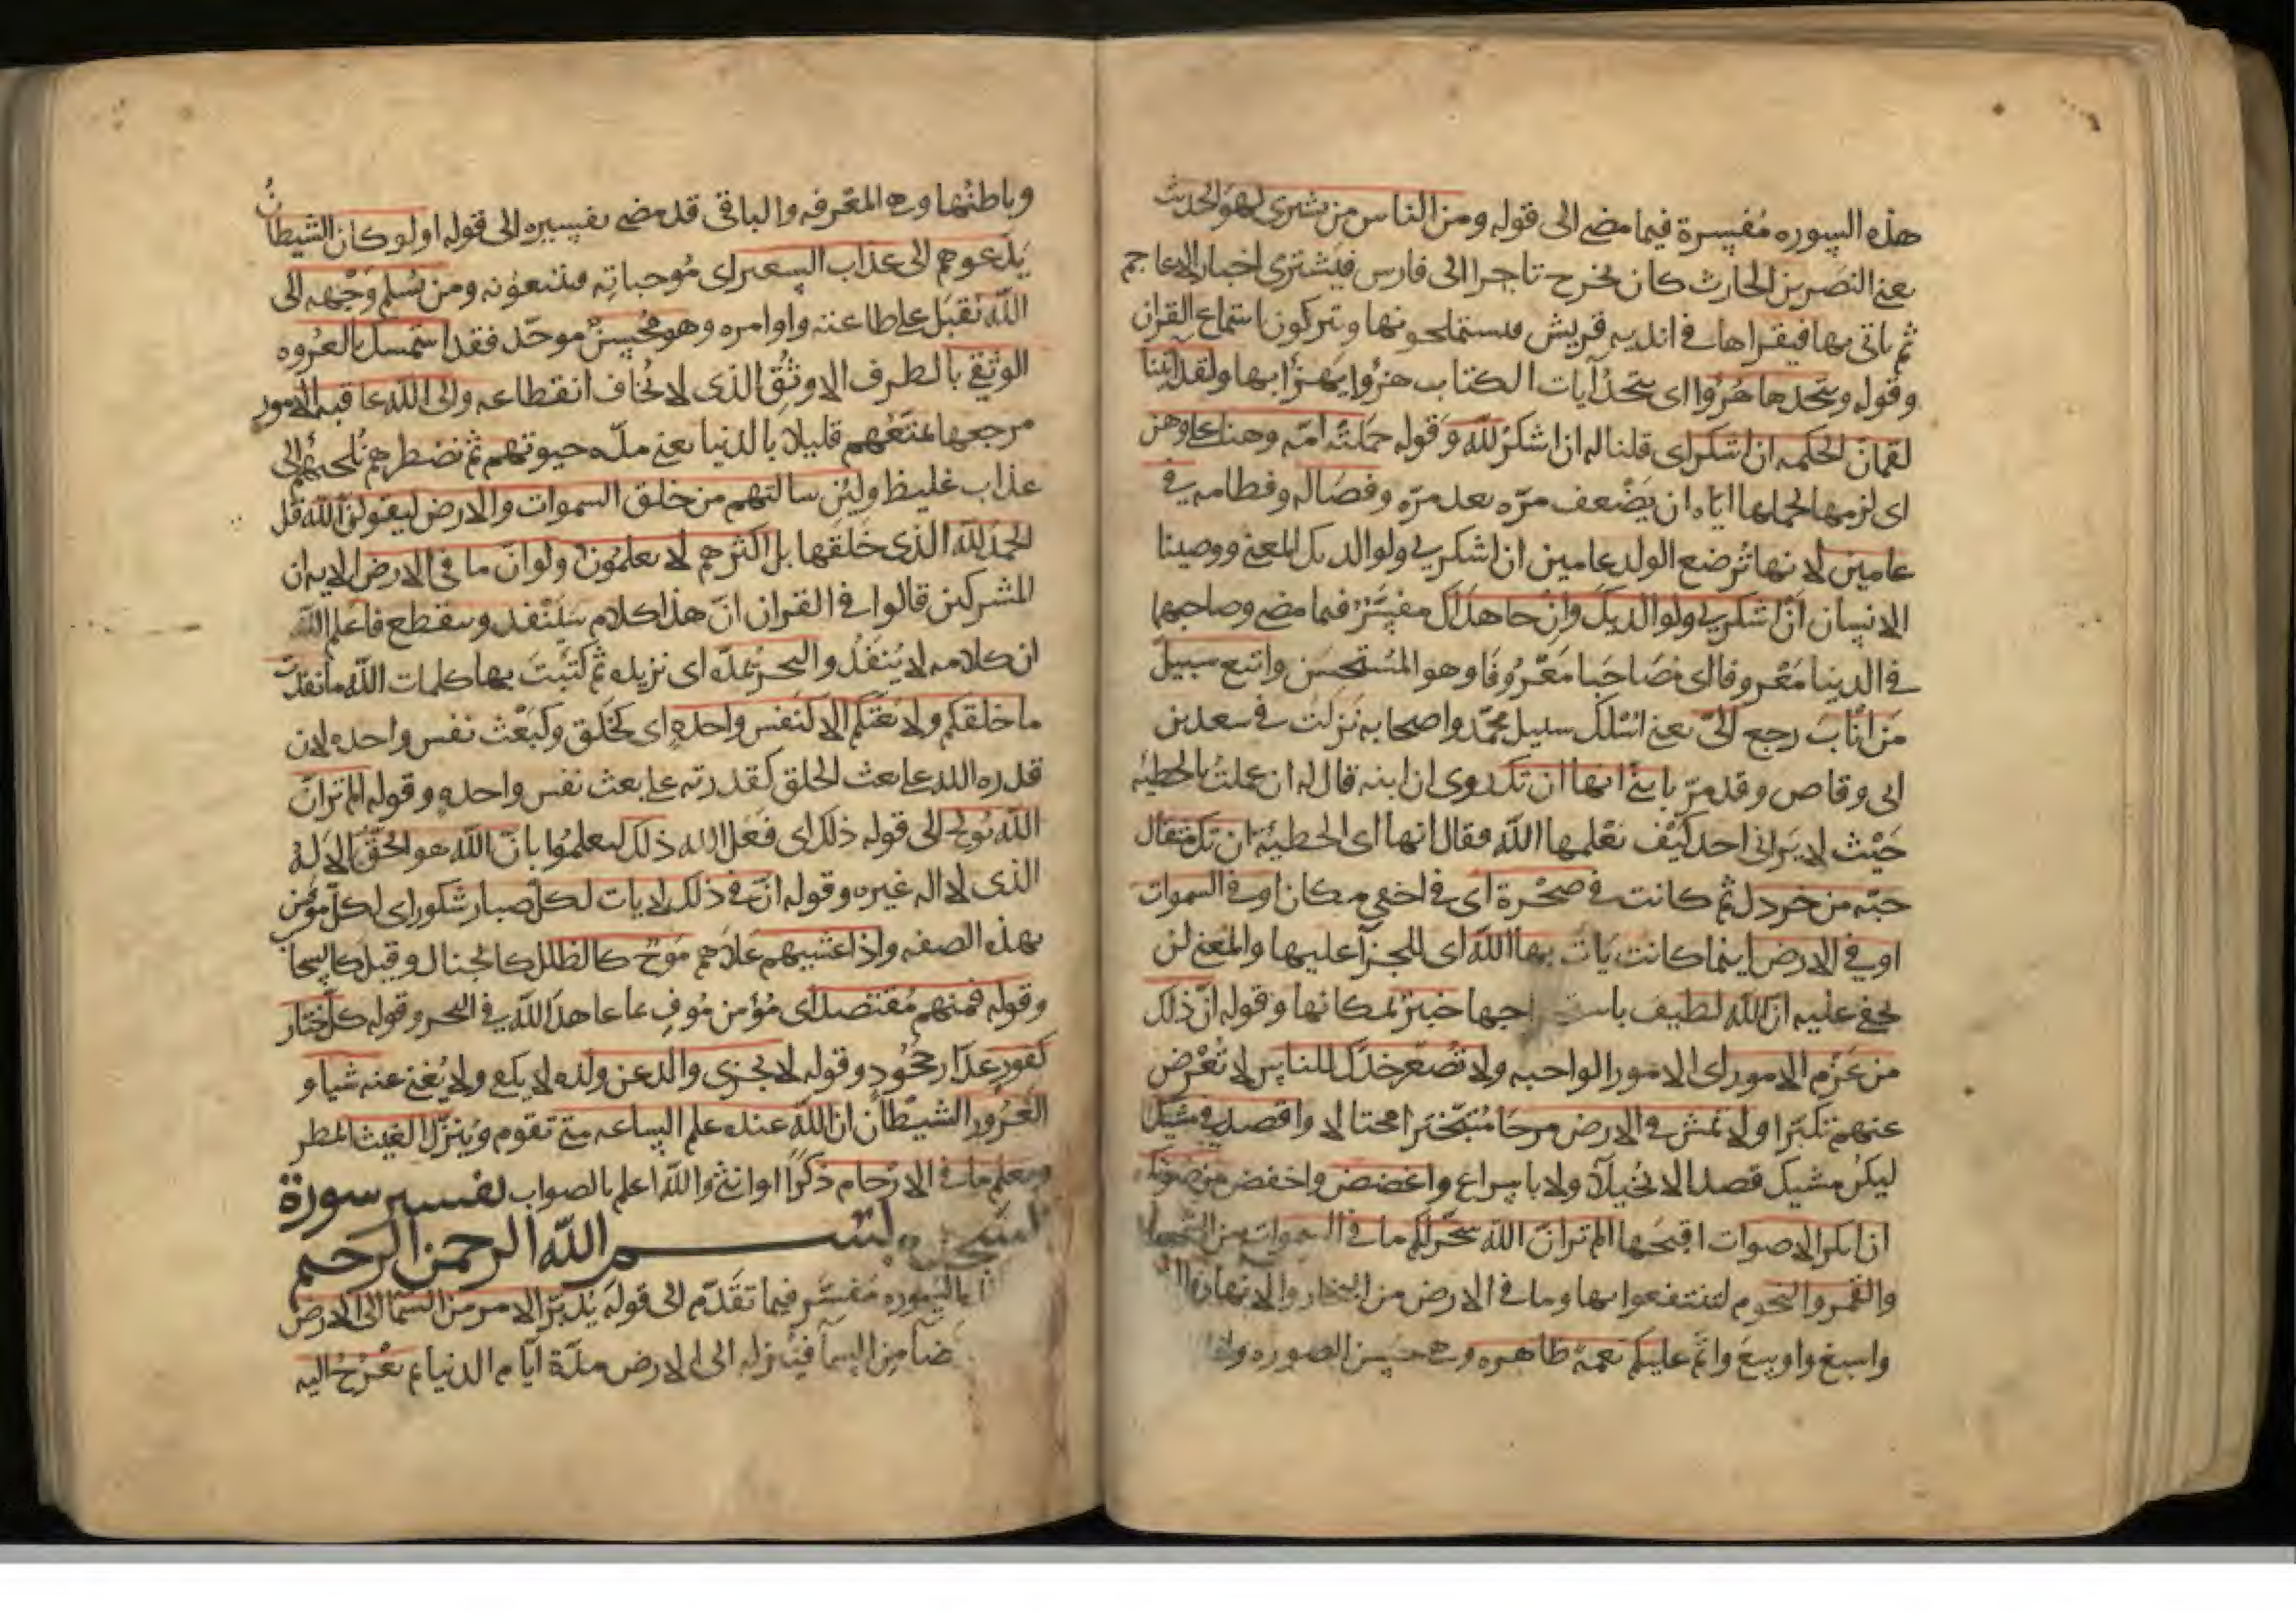 هذه السوره مفسرة فيما مضى الى قوله ومن الناس من يشترى لهو الحديث
يعنى النضر بن الحارث كان يخرج تاجرا الى فارس فيشترى اخبار الاعاجم
ثم ياتى بها فيقراها فى اندية قريش فيستملحونها ويتركون استماع القران
وقوله ويتخذها هزوا اى يتخذ آيات الكتاب هزوا يهزأ بها ولقد اتينا
لقمان الحكمه ان اشكر اى قلنا له ان اشكر لله وقوله حملته امه وهنا على وهن
اى لزمها لحملها اياه ان يضعف مرّه بعد مرّه وفصاله وفطامه فى
عامين لانها ترضع الولد عامين ان اشكر لى ولوالديك المعنى ووصينا
الانسان ان اشكر لى ولوالديك وان جاهداك مفسّر فيما مضى وصاحبهما
فى الدنيا معروفا اى مصاحبا معروفا وهو المستحسن واتبع سبيل
من اناب رجع الىّ يعنى اسلك سبيل محمّد واصحابه نزلت فى سعد بن
ابى وقاص وقد مرّ يا بنىّ انها ان تك روى ان ابنه قال له ان عملت بالخطيه
حيث لا يرانى احد كيف يعلمها الله فقال انها اى الخطيئة ان تك مثقال
حبّه من خردل ثم كانت فى صخرة اى فى اخفى مكان او فى السموات
او فى الارض اينما كانت يات بها الله اى للجزآ عليها والمعنى لن
يخفى عليه ان الله لطيف باستخراجها خبير بمكانها وقوله انّ ذلك
من عزم الامور اى الامور الواجبه ولا تصعّر خدّك للناس لا تعرض
عنهم تكبّرا ولا تمش فى الارض مرحا متبخترا مختالا واقصد فى مشيك
ليكن مشيك قصدا لا بخيلآ ولا باسراع واغضض واخفض من صوتك
ان انكر الاصوات اقبحها الم تر انّ الله سخّر لكم ما فى السموات من الشمس
والقمر والنجوم لتنتفعوا بها وما فى الارض من البحار والانهار
واسبغ واوسع واتم عليكم نعمه ظاهره وهى حسن الصوره
وباطنها وهى المعرفه والباقى قد مضى تفسيره الى قوله اولو كان الشيطان
يدعوهم الى عذاب السعير اى موجباته فيتبعونه ومن يسلم وجهه الى
الله يقبل على طاعته واوامره وهو محسن موحّد فقد استمسك بالعروه
الوثقى بالطرف الاوثق الذى لا يخاف انقطاعه والى الله عاقبه الامور
مرجعها نمتعهم قليلا بالدنيا يعنى مدّه حيوتهم ثم نضطرهم نلجئهم الى
عذاب غليظ ولئن سالتهم من خلق السموات والارض ليقولن الله قل
الحمد لله الذى خلقها بل اكثرهم لا يعلمون ولو انّ ما فى الارض الايه ان
المشركين قالوا فى القران انّ هذا كلام سينفد وينقطع فاعلم الله
ان كلامه لا ينفد والبحر يمدّه اى يزيده ثم كتبت بها كلمات الله ما نفدت
ما خلقكم ولا بعثكم الا كنفس واحده اى كخلق وكبعث نفس واحده لان
قدره الله على بعث الخلق كقدرته على بعث نفس واحده وقوله الم تر انّ
الله يولج الى قوله ذلك اى فعل الله ذلك ليعلموا بانّ الله هو الحقّ الاله
الذى لا اله غيره وقوله انّ فى ذلك لايات لكل صبار شكور اى لكل مؤمن
بهذه الصفه واذا غشيهم علاهم موج كالظلل كالجبال وقيل كالسحاب
وقوله فمنهم مقتصد اى مؤمن موف بما عاهد الله فى البحر وقوله كل ختار
كفور غدّار جحود وقوله لا يجزى والد عن ولده لا يكفى ولا يغنى عنه شيا و
الغرور الشيطان ان الله عنده علم الساعه متى تقوم وينزّل الغيث المطر
ويعلم ما فى الارحام ذكرا او انثى والله اعلم بالصواب تفسير سورة
السجده بسم الله الرحمن الرحيم
السوره مفسّر فيما تقدّم الى قوله يدبّر الامر من السما الى الارض
من السمآ فينزله الى الارض مدّة ايام الدنيا ثم يعرج اليه